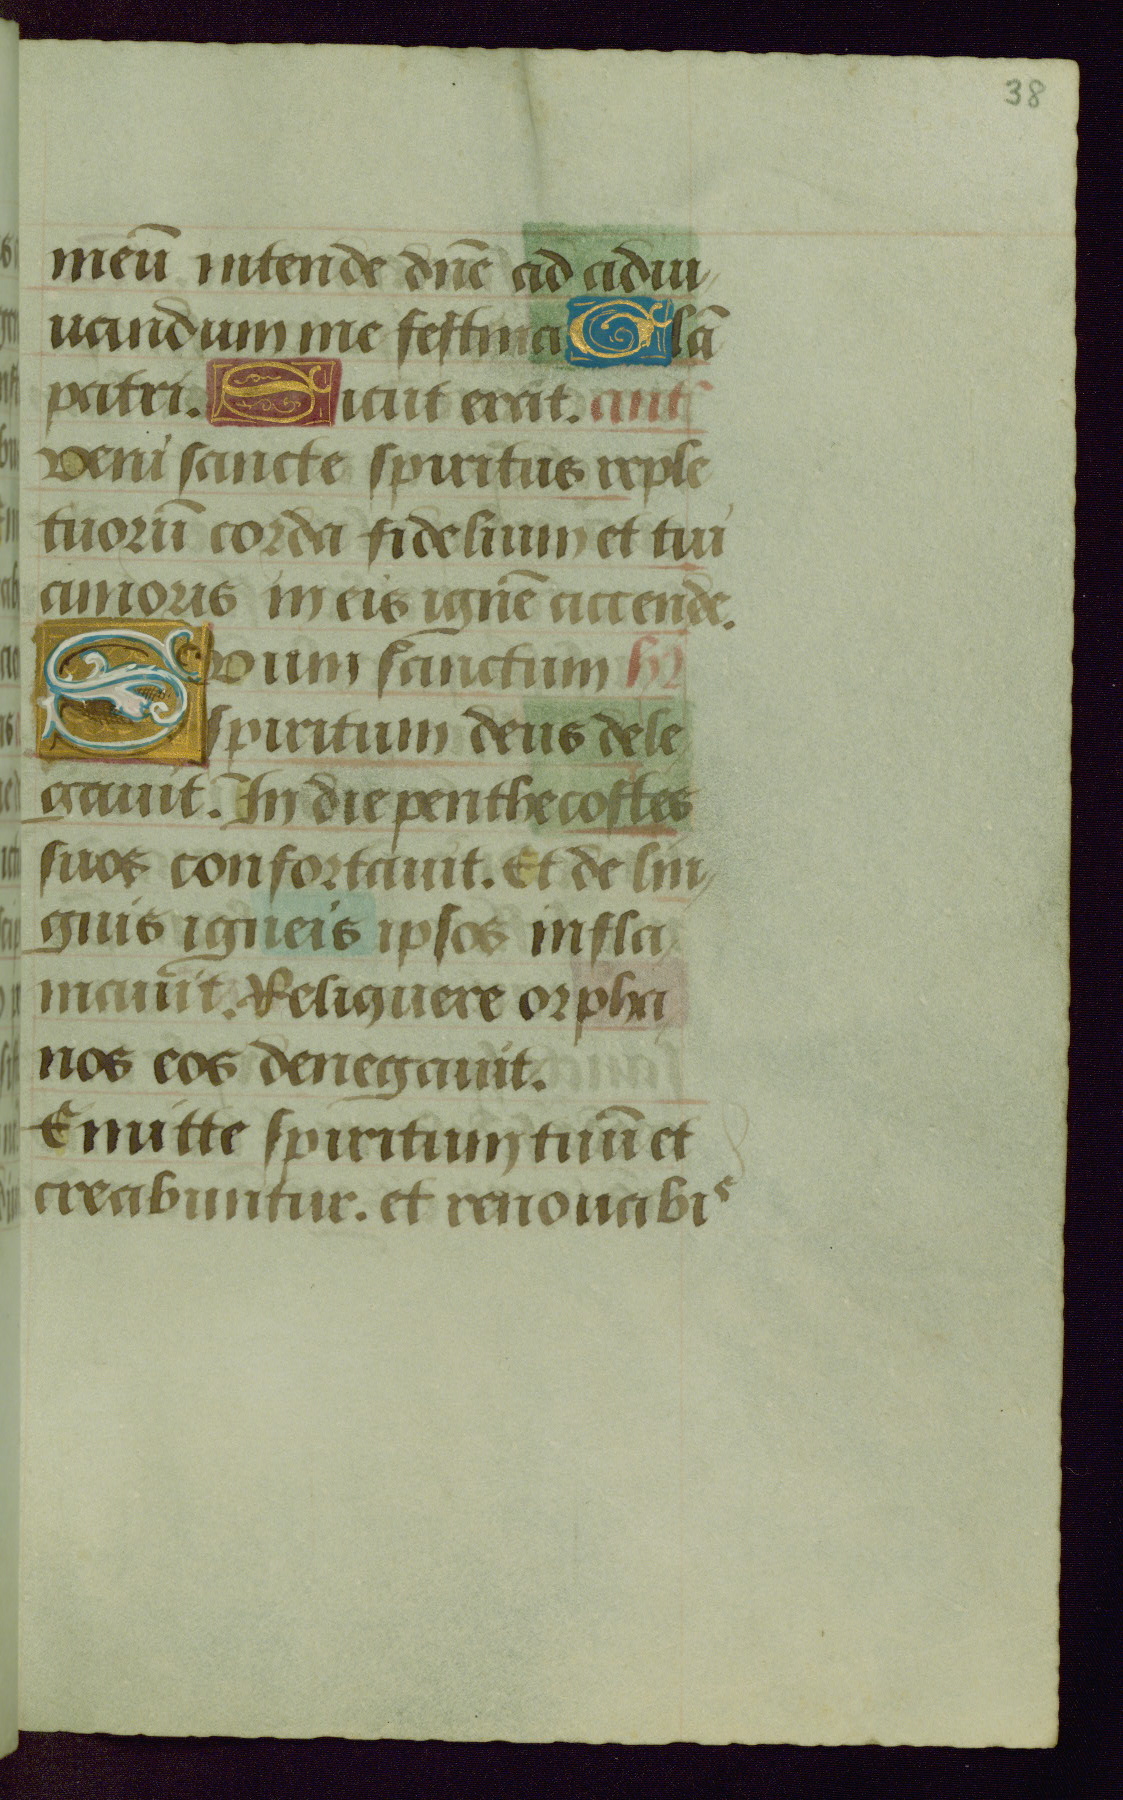 38
meū intende dn̄e ad adiu
uandum me festina Glā
patri. Sicut erat. ant
Veni sancte spiritus reple
tuorū corda fidelium et tui
amoris in eis ignē accende.
Suum sanctum hỹ
spiritum deus dele
gauit. In die penthecostes
suos confortauit. Et de lin
guis igneis ipsos infla
mauit. Reliquere orpha
nos eos denegauit.
Emitte spiritum tuū et
creabuntur. et renouabis